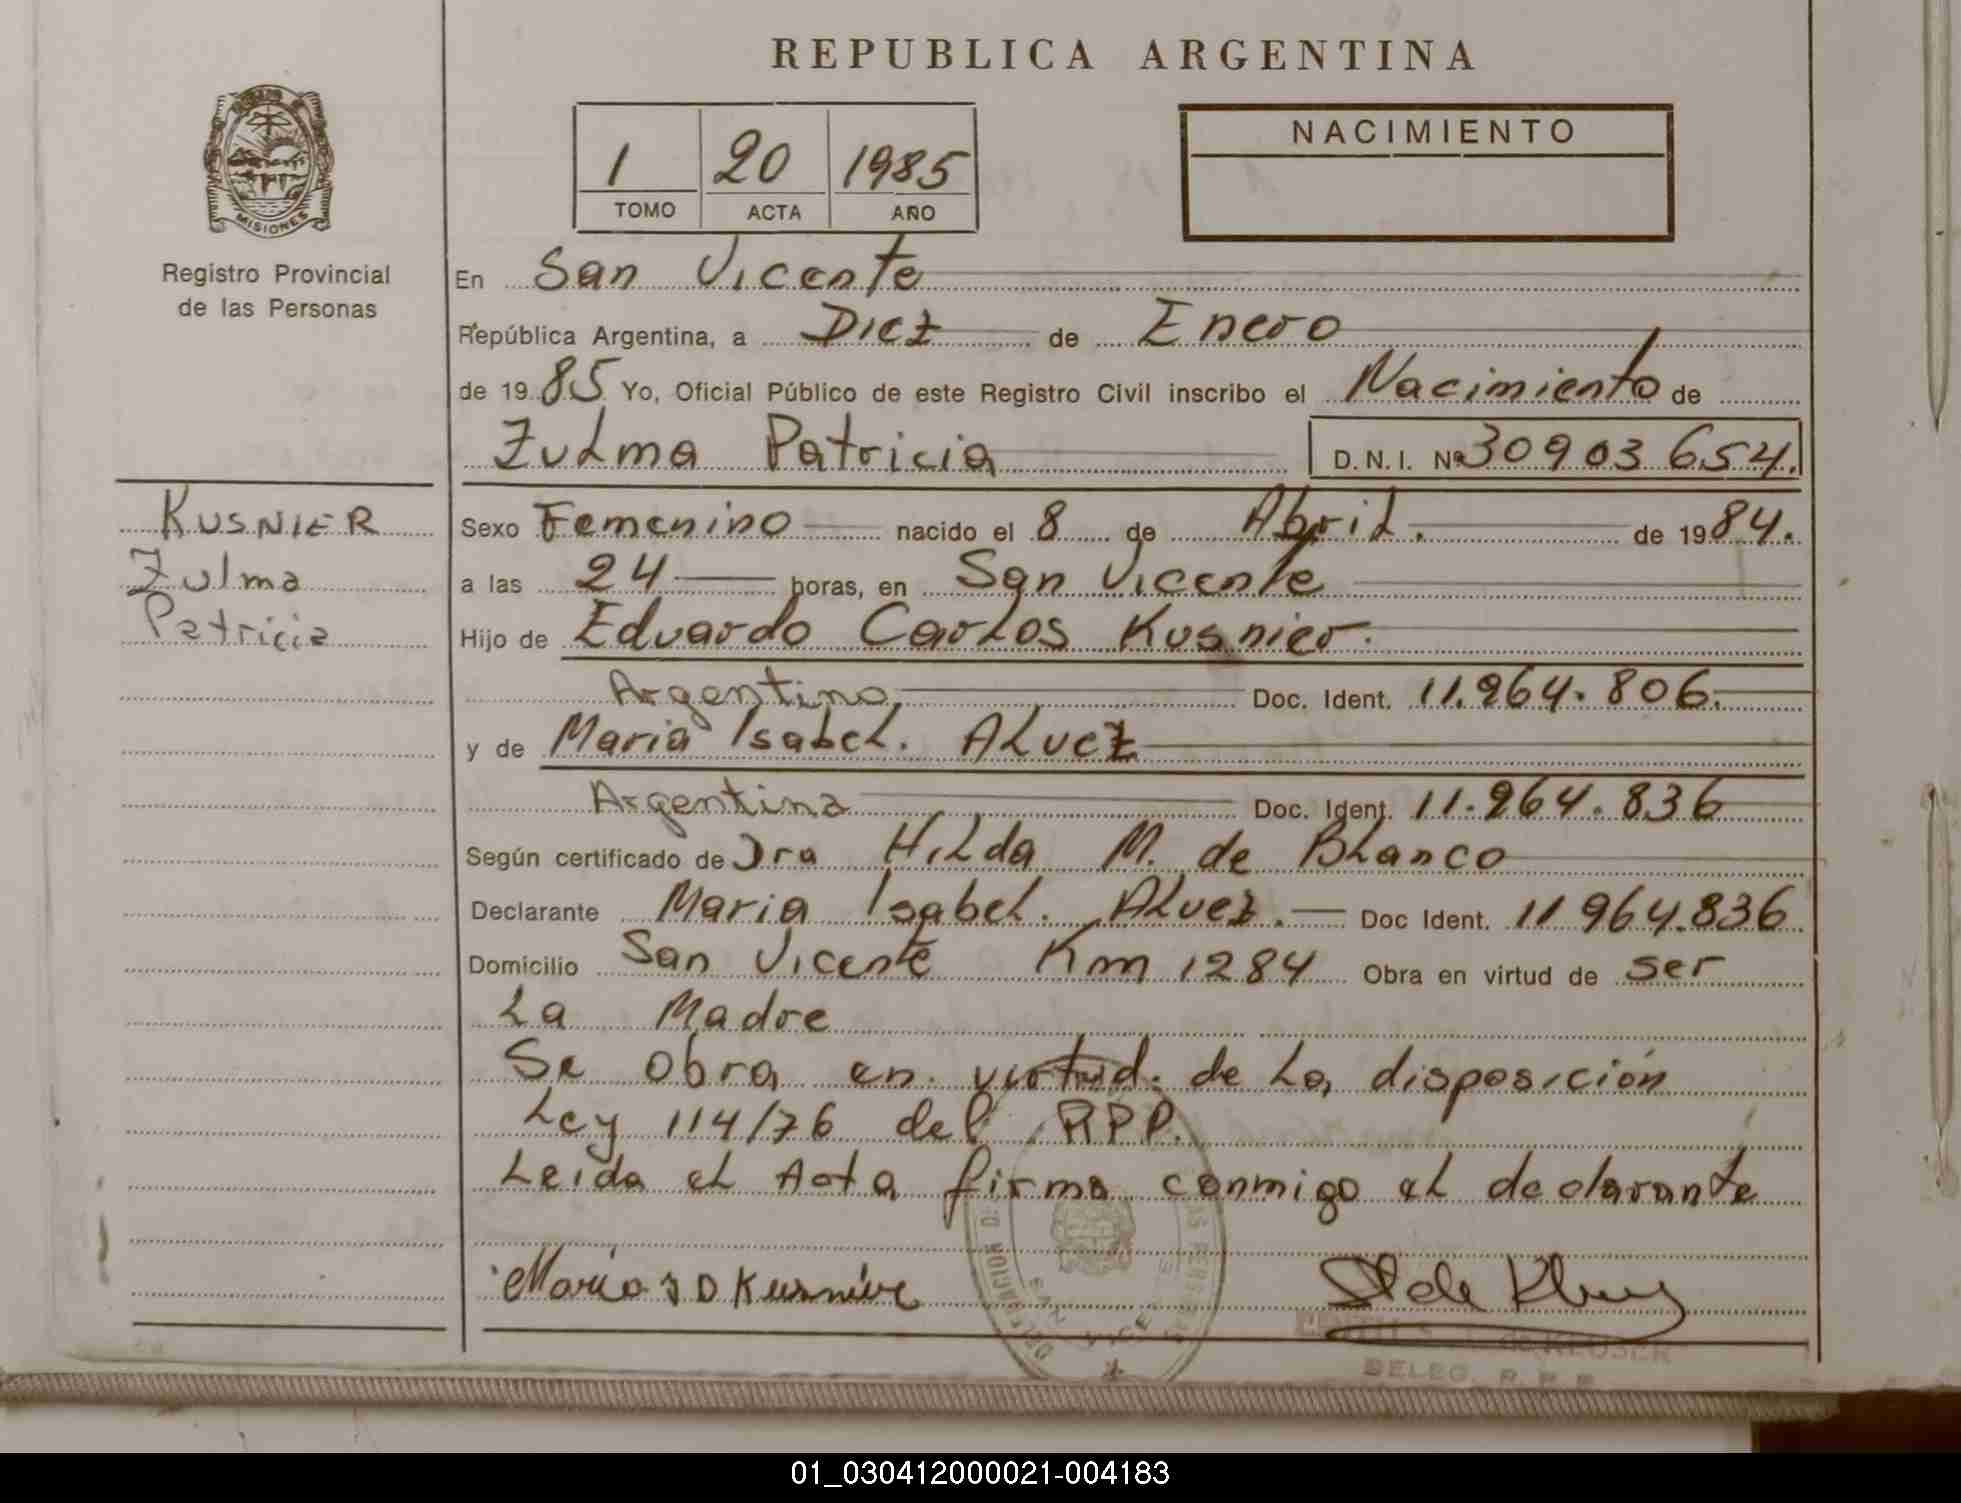 REPUBLICA ARGENTINA
1 20 1985
TOMO ACTA AÑO
NACIMIENTO
MISIONES
Registro Provincial
de las Personas
En San Vicente
República Argentina, a Diez de Enero
de 1985 Yo, Oficial Público de este Registro Civil inscribo el Nacimiento de
Zulma Patricia D.N.I. Nº 30903654.
KUSNIER
Zulma
Patricia
Sexo Femenino nacido el 8 de Abril. de 1984.
a las 24 horas, en San Vicente
Hijo de Eduardo Carlos Kusnier.
Argentino Doc. Ident. 11.964.806.
y de Maria Isabel. Alvez
Argentina Doc. Ident. 11.964.836
Según certificado de Dra Hilda M. de Blanco
Declarante Maria Isabel. Alvez. Doc Ident. 11964.836
Domicilio San Vicente Km 1284 Obra en virtud de ser
La Madre
Se obra en virtud. de La disposición
Ley 114/76 del RPP.
Leida el Acta firma conmigo el declarante
Maria I D Kusnier
DELEG. R.P.P.
01_030412000021-004183